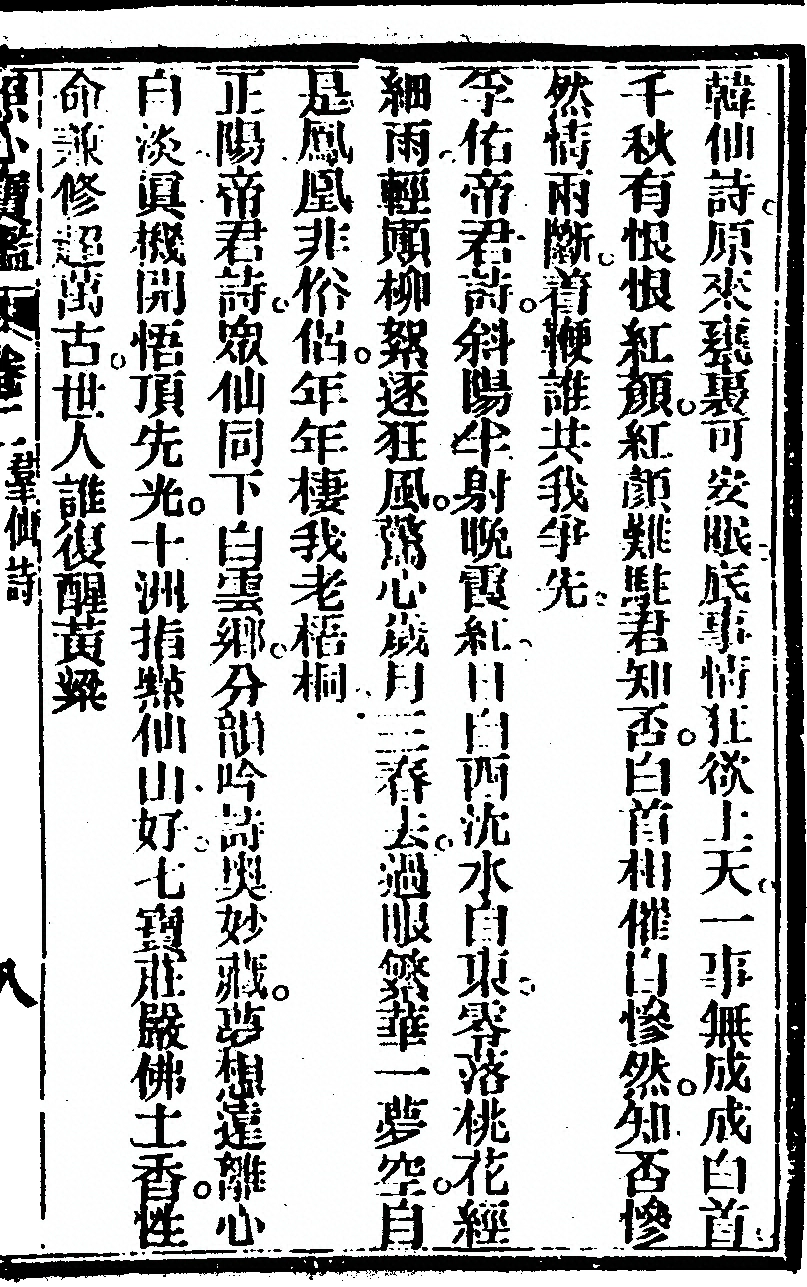 韓仙詩。原來甕裏可安眠底事情狂欲上天。一事無成成白首。
千秋有恨恨紅顏。紅顏難駐君知否。白首相催自慘然。知否慘
然情兩斷。着鞭誰共我爭先。
孚佑帝君詩。斜陽半射晚霞紅。日自西沈水自東。零落桃花經
細雨。輕顛柳絮逐狂風。驚心歲月三春去。過眼繁華一夢空。自
是鳳凰非俗侶。年年棲我老梧桐。
正陽帝君詩。眾仙同下白雲鄉。分韻吟詩奧妙藏。夢想遠離心
自淡。眞機開悟頂先光。十洲指點仙山好。七寶莊嚴佛土香。性
命兼修超萬古。世人誰復醒黃粱
照心寶鑑 卷二 羣仙詩 八